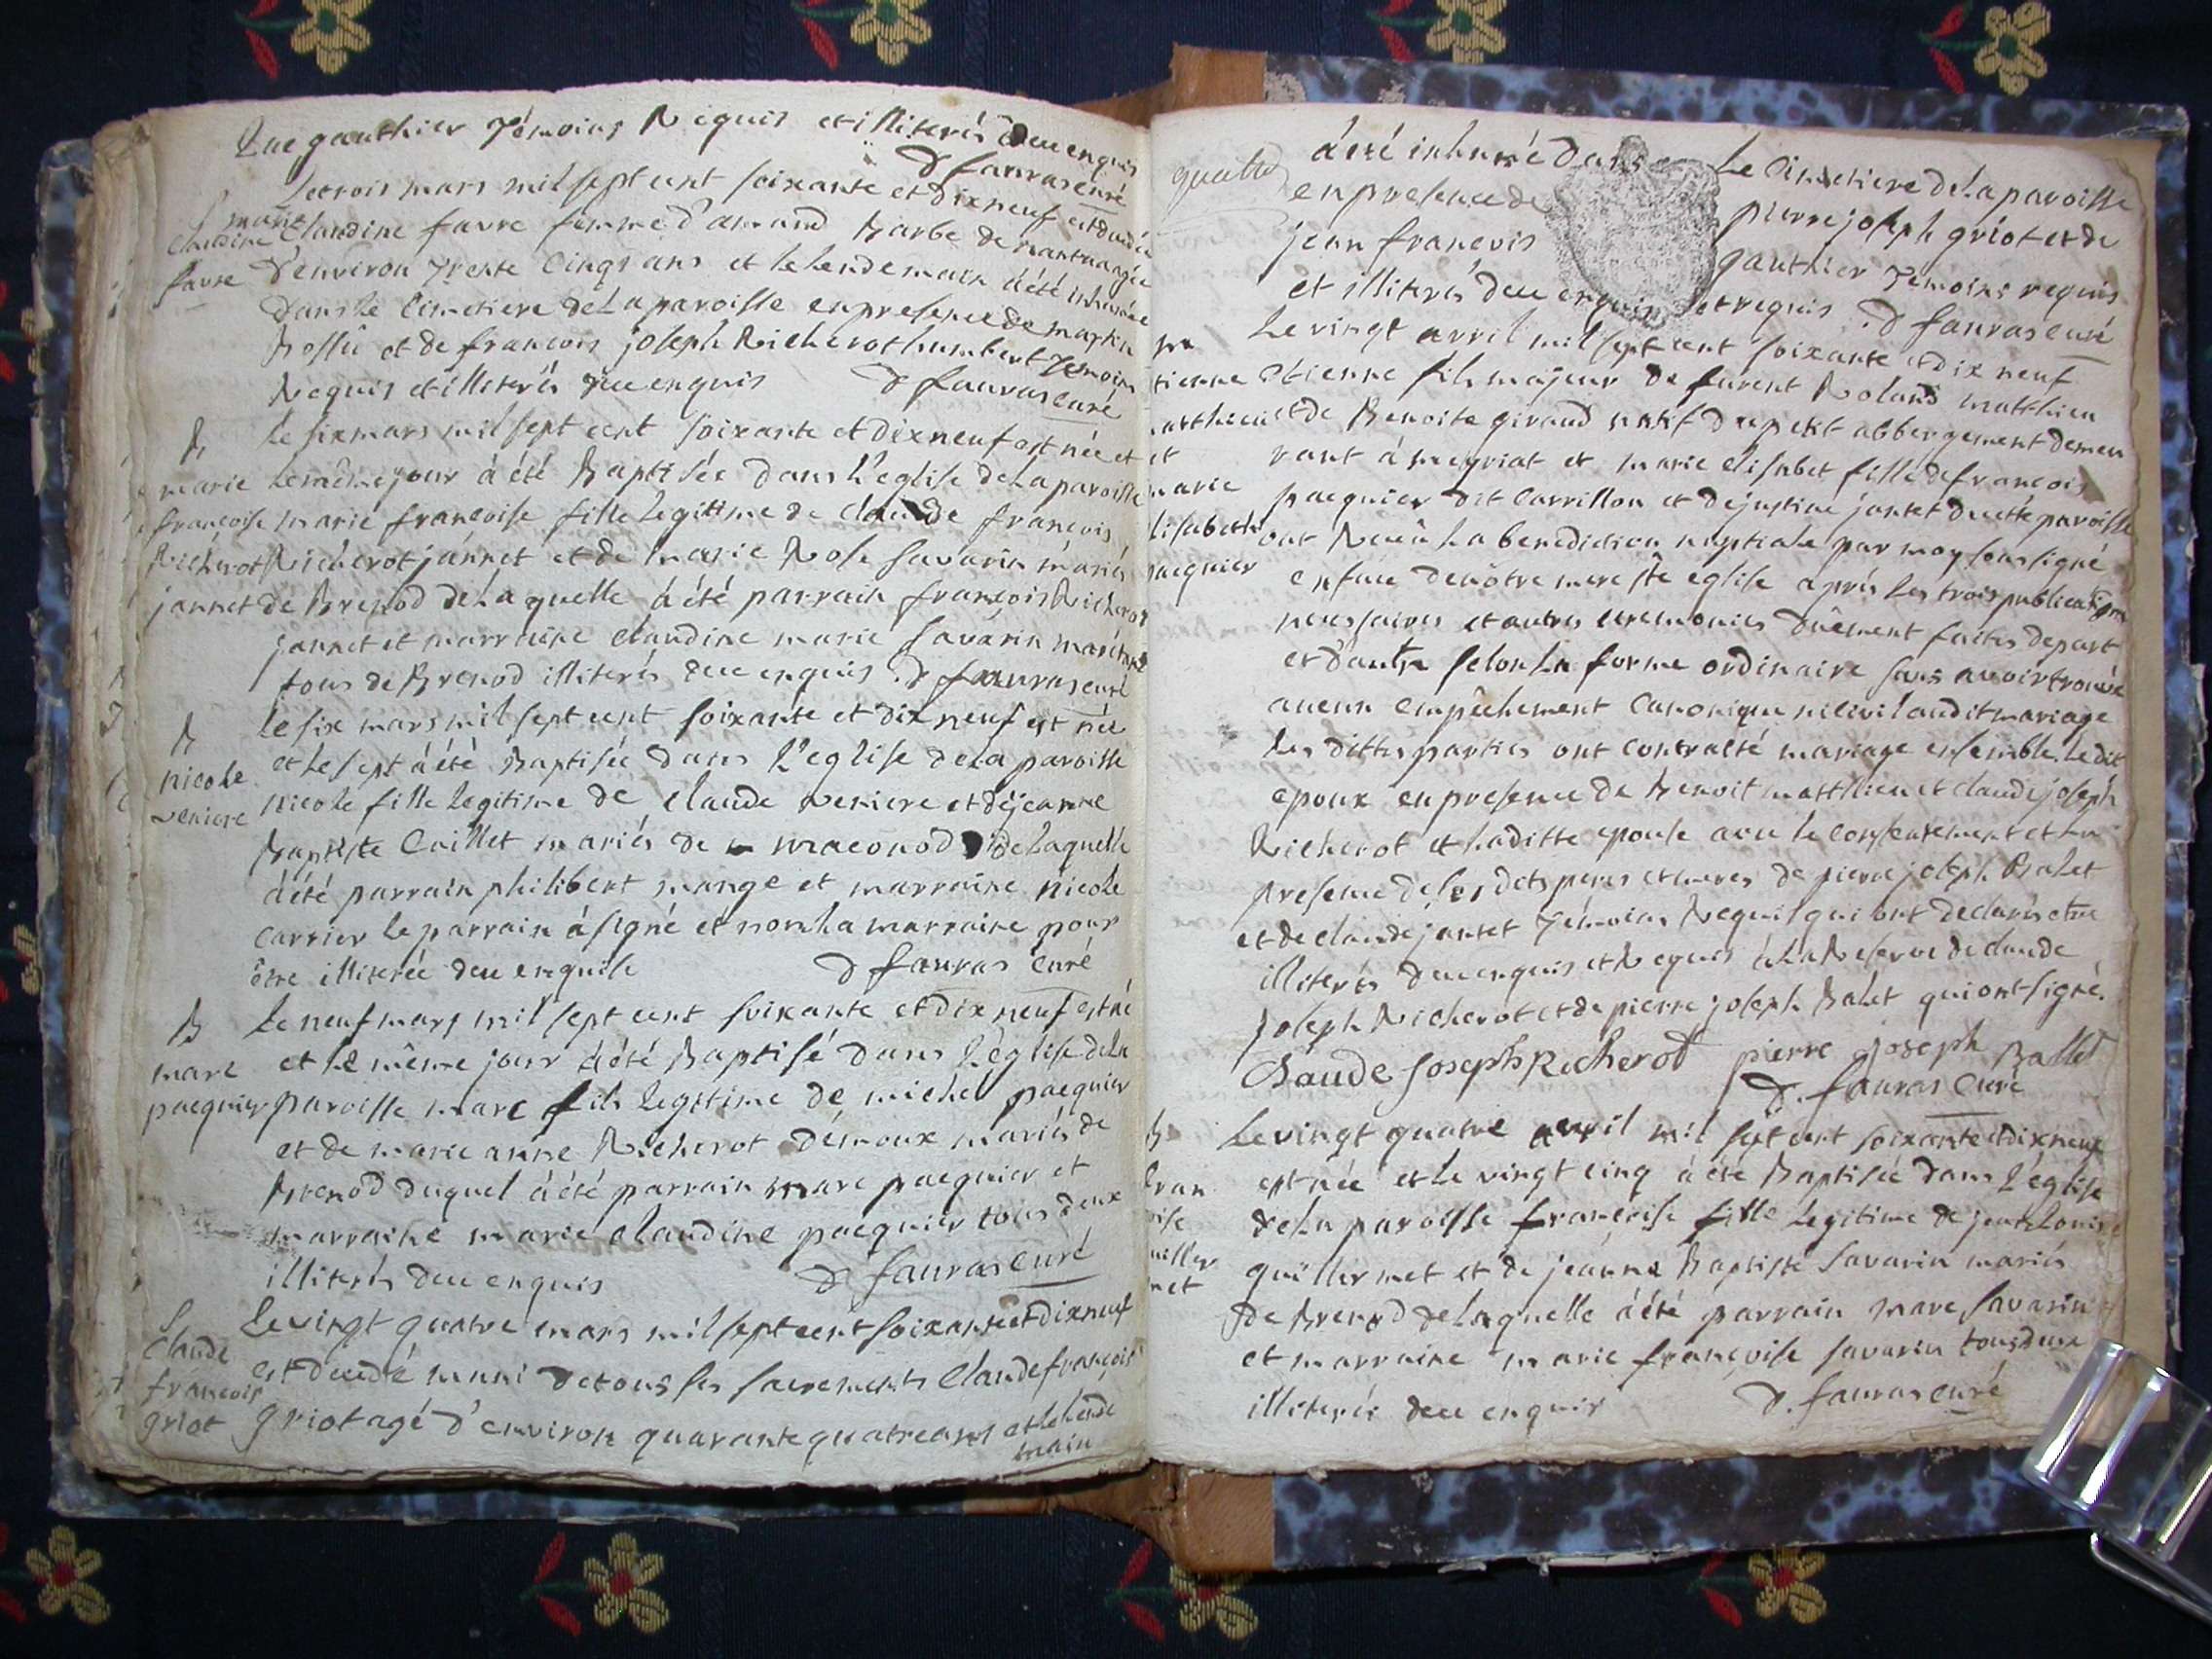 Luc gauthier témoins Requis et illiterés de ce enquis
D fauras curé
Le trois mars mil sept cent soixante et dix neuf est decedée
S
marie
claudine
favre
Claudine favre femme d'amand Barbe de nantua agée
d'environ trente cinqs ans et le lendemain à été inhumée
dans le Cimetiere de La paroisse en presence de martin
Bossû et de francois joseph Richerot humbert temoins
Requis et illiterés de ce enquis D fauras curé
B
Le six mars mil sept cent soixante et dix neuf est née et
marie
françoise
Richerot
jannet
le même jour à été Baptisée dans L'eglise de La paroisse
marie françoise fille legitime de claude françois
Richerot jannet et de marie Rose savarin mariés
de Brenod de La quelle à été parrain françois Richerot
jannet et marraine claudine marie savarin
tous de Brenod illiterés de ce enquis D fauras curé
B
nicole
veniere
Le six mars mil sept cent soixante et dix neuf est née
et le sept à été Baptisée dans L'eglise de La paroisse
nicole fille legitime de claude veniere et de jeanne
Baptiste Cuillet mariés de maconod de laquelle
à été parrain philibert mange et marraine nicole
carrier le parrain à signé et non la marraine pour
être illiterée de ce enquise D fauras Curé
B
marc
pacquier
Le neuf mars mil sept cent soixante et dix neuf est né
et le même jour à été Baptisé dans L'église de La
paroisse marc fils legitime de michel pacquier
et de marie anne Richerot démoux mariés de
Brenod duquel à été parrain marc pacquier et
marraine marie claudine pacquier tous deux
illiterés de ce enquis D fauras curé
S
Claude
francois
griot
Le vingt quatre mars mil sept cent soixante et dix neuf
est decedé muni de tous ses sacrements Claude françois
griot agé d'environ quarante quatre ans et le lende
main
quatre
à été inhumé dans Le Cimetiere de La paroisse
en presence de pierre joseph griot et de
jean francois gauthier témoins requis
et illiterés de ce enquis et requis. D fauras curé
Le vingt avril mil sept cent soixante et dix neuf
Etienne fils majeur de furent Roland matthieu
et de Benoite giraud natif du petit abbergement demeu
rant à meyriat et marie elisabet fille de francois
pacquier dit Carrillon et de justine jantet de cette paroisse
ont Reçû La benediction nuptiale par moy soussigné
en face de nôtre mere ste eglise après les trois publications
necessaires et autres ceremonies dûement faites de part
et d'autre selon La forme ordinaire sans avoir trouvé
aucun empêchement Canonique ni civil audit mariage
Les dittes parties ont contracté mariage ensemble. Le dit
epoux en presence de Benoit matthieu et claude joseph
Richerot et La ditte epouse avec le consentement et La
presence de ses dits peres et meres de pierre joseph Balet
et de claude jantet témoins Requis qui ont declarés etre
illiterés de ce enquis et Requis à La Reserve de claude
joseph Richerot et de pierre joseph Balet qui ont signé.
Claude Joseph Richerot pierre joseph Ballet
D. fauras Curé
Le vingt quatre avril mil sept cent soixante et dix neuf
est née et Le vingt cinq à été Baptisée dans L'église
de La paroisse françoise fille Legitime de jean Louis
guillermet et de jeanne Baptiste Savarin mariés
de Brenod de laquelle à été parrain marc savarin
et marraine marie françoise savarin tous deux
illiterés de ce enquis D. fauras curé